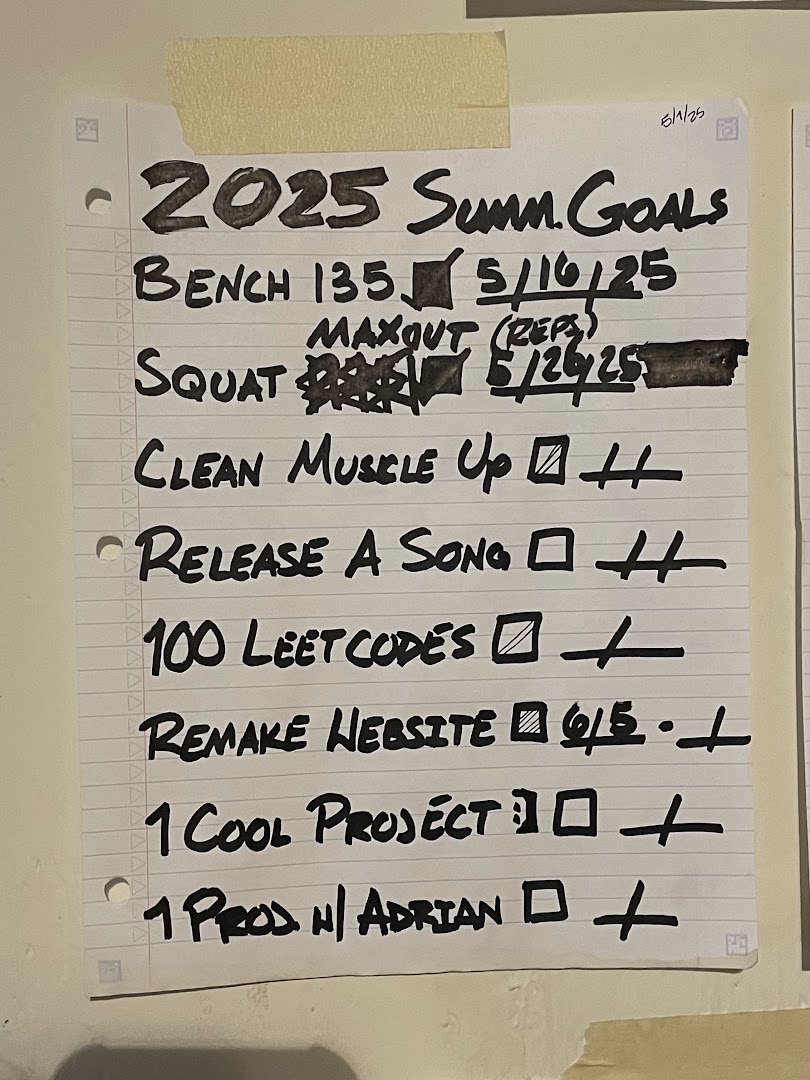 5/1/25
2025 SUMM. GOALS
BENCH 135 5/16/25
MAXOUT (REPS)
SQUAT 5/26/25
CLEAN MUSCLE UP //
RELEASE A SONG //
100 LEETCODES /
REMAKE WEBSITE 6/5 · /
1 COOL PROJECT :] /
1 PROJ. W/ ADRIAN /